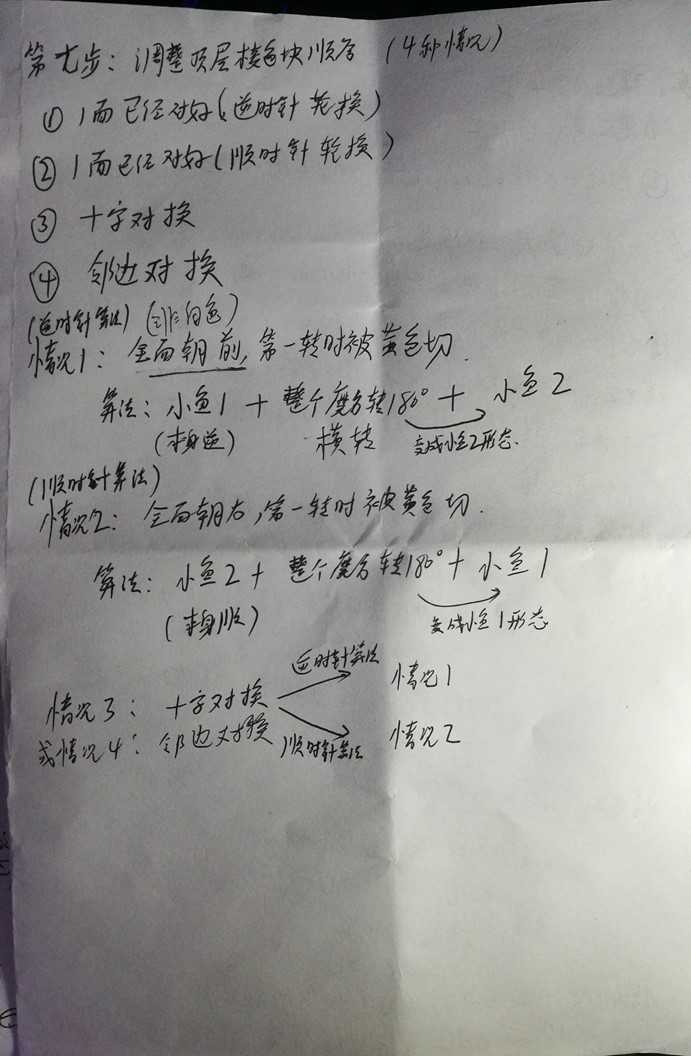 第七步：调整顶层棱色块顺序 (4种情况)
① 1面已经对好(逆时针轮换)
② 1面已经对好(顺时针轮换)
③ 十字对换
④ 邻边对换
(逆时针算法) (非白色)
情况1：全面朝前，第一转时被黄色切.
算法：小鱼1 + 整个魔方转180° + 小鱼2
(本身逆) 横转 变成小鱼2形态.
(顺时针算法)
情况2：全面朝右，第一转时被黄色切.
算法：小鱼2 + 整个魔方转180° + 小鱼1
(本身顺) 变成小鱼1形态
逆时针算法 情况1
情况3：十字对换
或情况4：邻边对换 顺时针算法 情况2